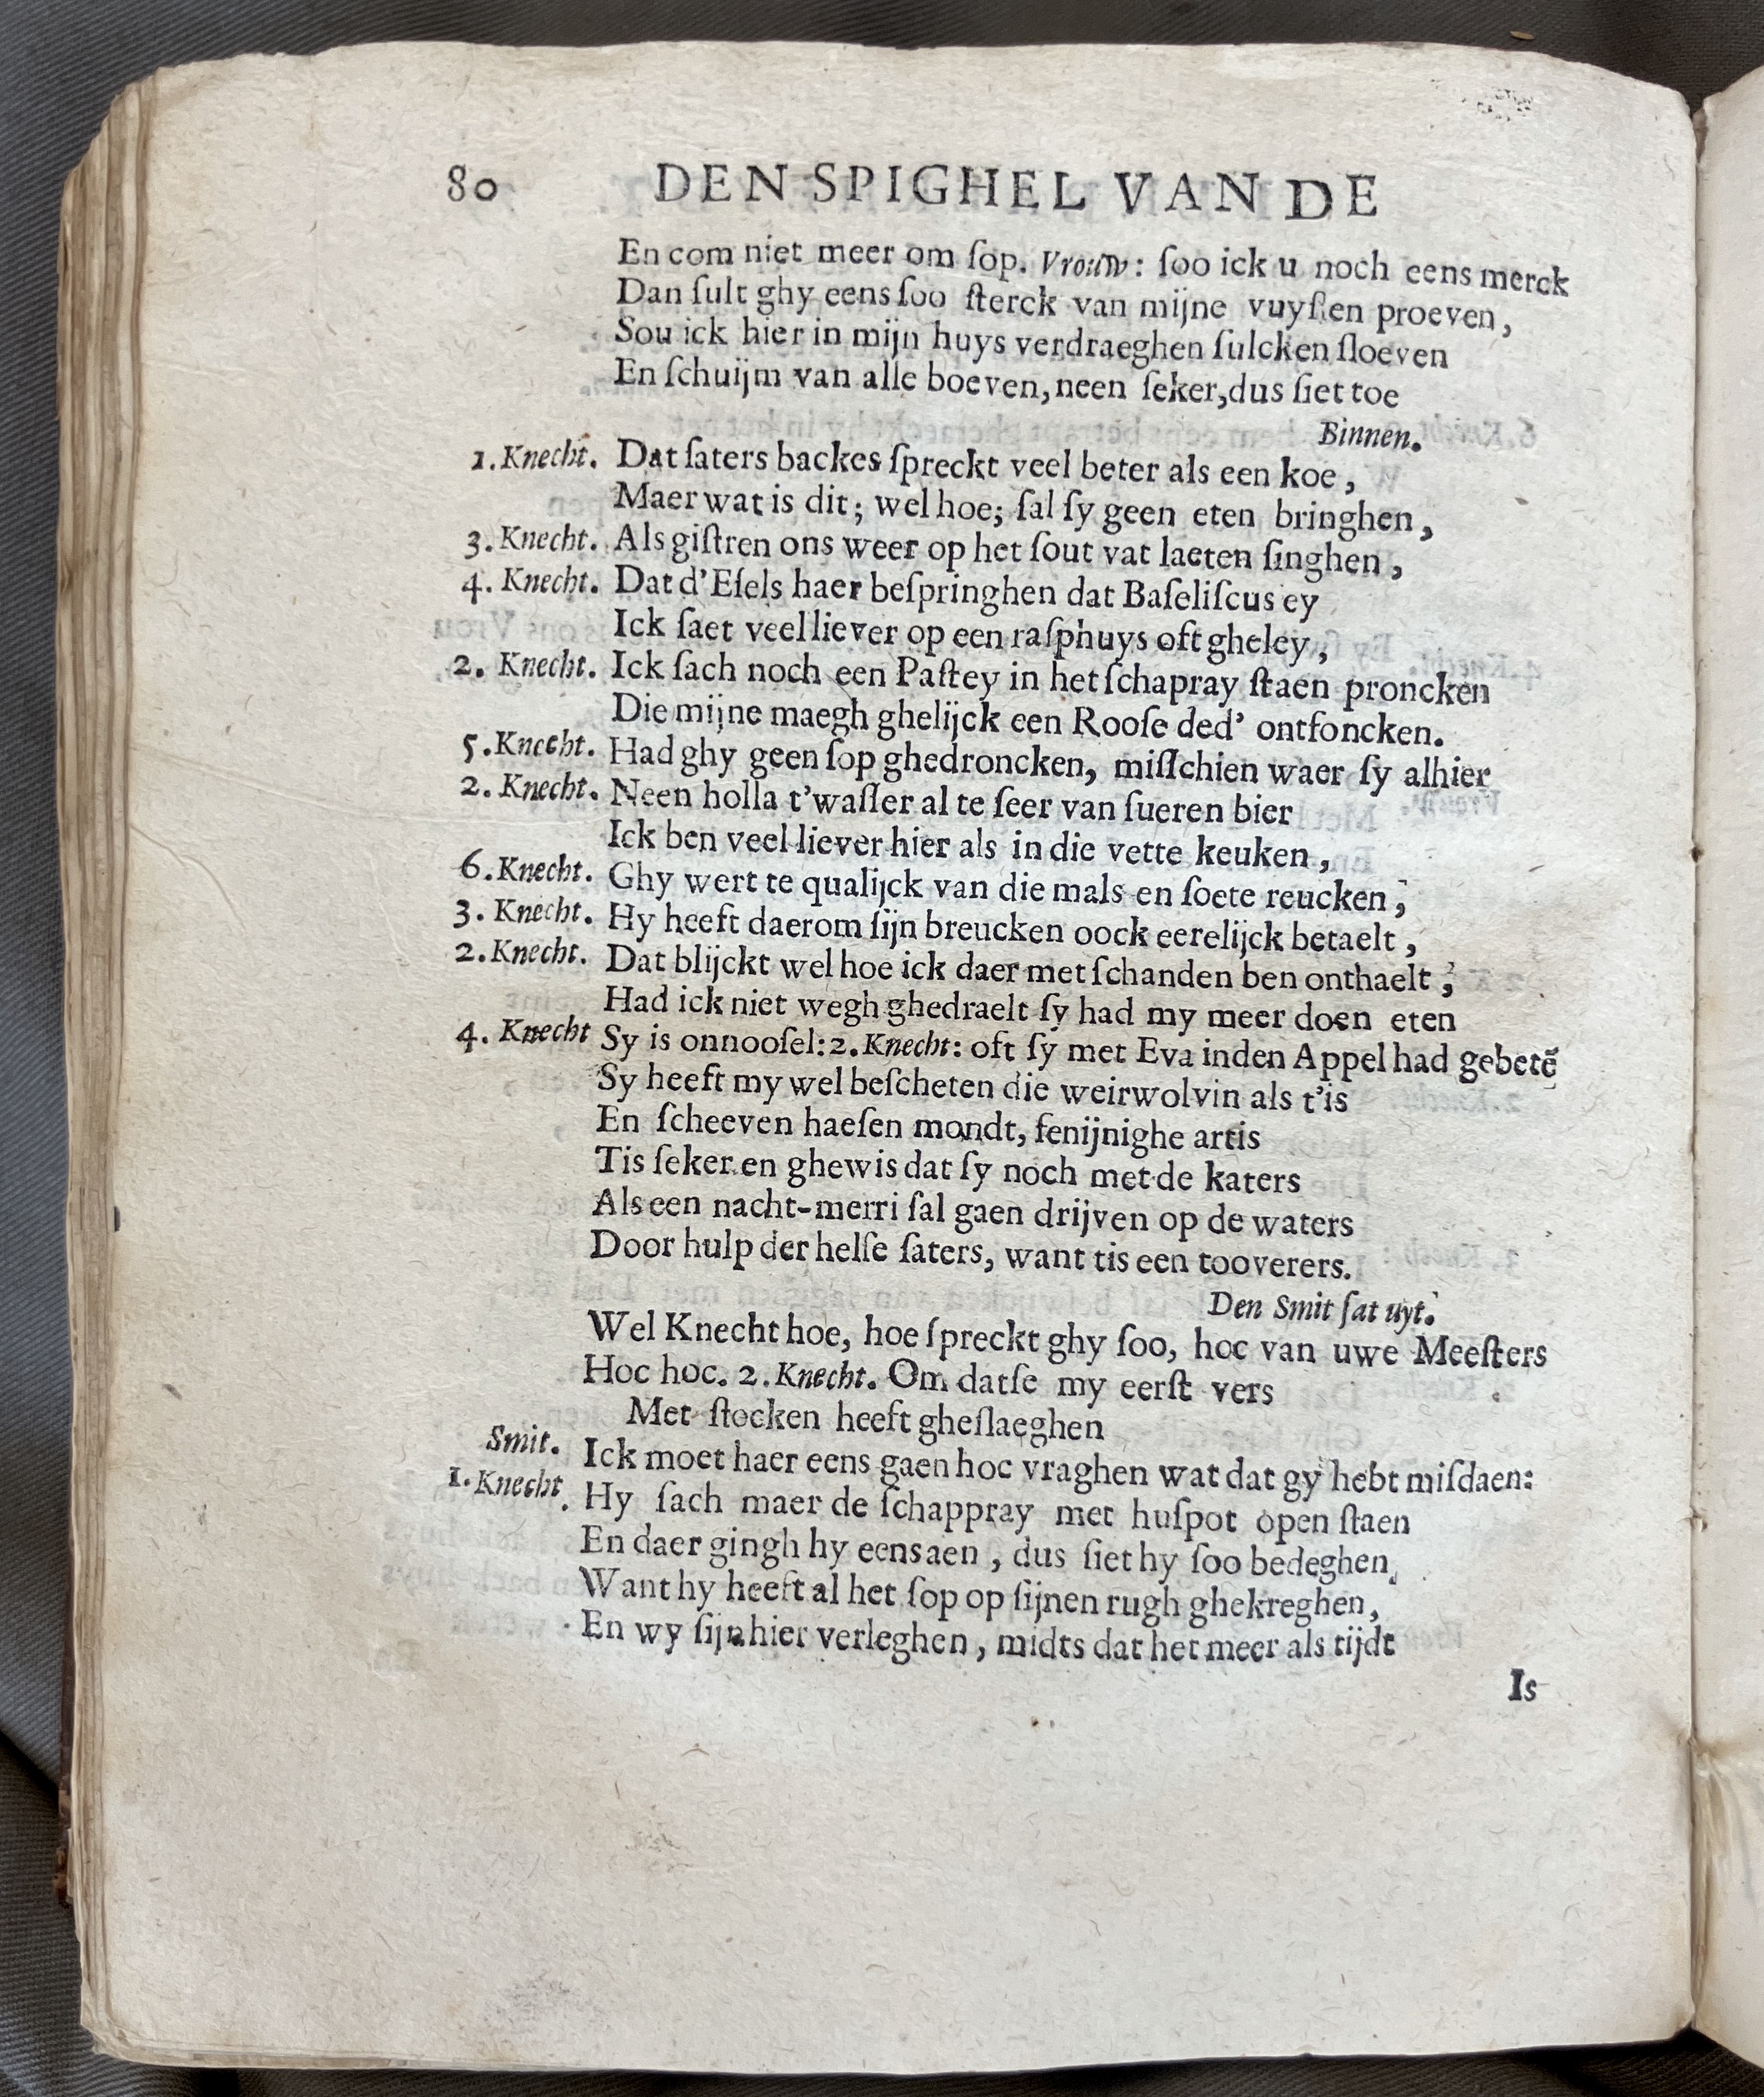 80 DEN SPIGHEL VAN DE
En com niet meer om ſop. Vrouw: ſoo ick u noch eens merck
Dan ſult ghy eens ſoo ſterck van mijne vuyſten proeven,
Sou ick hier in mijn huys verdraeghen ſulcken ſloeven
En ſchuijm van alle boeven, neen ſeker, dus ſiet toe
Binnen.
1. Knecht. Dat ſaters backes ſpreckt veel beter als een koe,
Maer wat is dit; wel hoe; ſal ſy geen eten bringhen,
3. Knecht. Als giſtren ons weer op het ſout vat laeten ſinghen,
4. Knecht. Dat d'Eſels haer beſpringhen dat Baſeliſcus ey
Ick ſaet veel liever op een raſphuys oft gheley,
2. Knecht. Ick ſach noch een Paſtey in het ſchapray ſtaen proncken
Die mijne maegh ghelijck een Rooſe ded' ontfoncken.
5. Knecht. Had ghy geen ſop ghedroncken, miſſchien waer ſy alhier
2. Knecht. Neen holla t'waſſer al te ſeer van ſueren bier
Ick ben veel liever hier als in die vette keuken,
6. Knecht. Ghy wert te qualijck van die mals en ſoete reucken;
3. Knecht. Hy heeft daerom ſijn breucken oock eerelijck betaelt,
2. Knecht. Dat blijckt wel hoe ick daer met ſchanden ben onthaelt;
Had ick niet wegh ghedraelt ſy had my meer doen eten
4. Knecht Sy is onnooſel: 2. Knecht: oft ſy met Eva inden Appel had gebetē
Sy heeft my wel beſcheten die weirwolvin als t'is
En ſcheeven haeſen mondt, fenijnighe artis
Tis ſeker en ghewis dat ſy noch met de katers
Als een nacht-merri ſal gaen drijven op de waters
Door hulp der helſe ſaters, want tis een tooverers.
Den Smit ſat uyt.
Wel Knecht hoe, hoe ſpreckt ghy ſoo, hoc van uwe Meeſters
Hoc hoc. 2. Knecht. Om datſe my eerſt vers
Met ſtocken heeft gheſlaeghen
Smit. Ick moet haer eens gaen hoc vraghen wat dat gy hebt miſdaen:
1. Knecht. Hy ſach maer de ſchappray met huſpot open ſtaen
En daer gingh hy eens aen, dus ſiet hy ſoo bedeghen,
Want hy heeft al het ſop op ſijnen rugh ghekreghen,
En wy ſijn hier verleghen, midts dat het meer als tijdt
Is